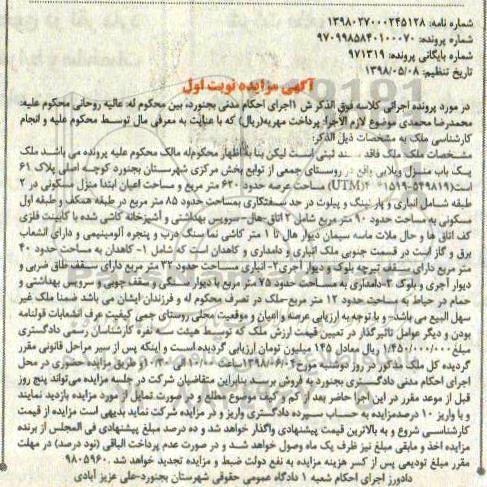 شماره نامه: ۱۳۹۸۰۳۷۰۰۰۲۴۵۱۲۸
شماره پرونده: ۹۷۰۹۹۸۵۸۴۰۱۰۰۰۷۰
شماره بایگانی پرونده: ۹۷۱۳۱۹
تاریخ تنظیم: ۱۳۹۸/۰۵/۰۸
آگهی مزایده نوبت اول
در مورد پرونده اجرائی کلاسه فوق الذکر ش ۱اجرای احکام مدنی بجنورد، بین محکوم له: عالیه روحانی محکوم علیه:
محمدرضا محمدی موضوع لازم الاجراء پرداخت مهریه(ریال) که با عنایت به معرفی مال توسط محکوم علیه و انجام
کارشناسی ملک به مشخصات ذیل الذکر:
مشخصات ملک ملک فاقد سند ثبتی است لیکن بنا به اظهار محکوم‌له مالک محکوم علیه پرونده می باشد ملک
یک باب منزل ویلایی واقع در روستای جمعی از توابع بخش مرکزی شهرستان بجنورد کوچه اصلی پلاک ۶۱
است (UTM) مساحت عرصه حدود ۶۲۰ متر مربع و مساحت اعیان ابتدا منزل مسکونی در ۲
طبقه شامل انباری و پارکینگ و پیلوت در حد سفتکاری بمساحت حدود ۸۵ متر مربع در طبقه همکف و طبقه اول
مسکونی به مساحت حدود ۹۰ متر مربع شامل ۲ اتاق-هال- سرویس بهداشتی و آشپزخانه کاشی شده با کابینت فلزی
کف اتاق ها و حال ملات ماسه سیمان دیوار هال تا ۱ متر کاشی نما سنگ درب و پنجره آلومینیمی و دارای انشعاب
برق و گاز است در قسمت جنوبی ملک انباری و دامداری و کاهدان است که شامل ۱- کاهدان به مساحت حدود ۴۰
متر مربع دارای سقف تیرچه بلوک و دیوار آجری ۲- انباری مساحت حدود ۳۲ متر مربع دارای سقف طاق ضربی و
دیوار آجری و بلوک ۳-دامداری به مساحت حدود ۷۵ متر مربع با دیوار سنگی و سقف چوبی و سرویس بهداشتی و
حمام در حیاط به مساحت حدود ۱۲ متر مربع-ملک در تصرف محکوم له و فرزندان ایشان می باشد ضمنا ملک غیر
سهل البیع می باشد- و با توجه به ارزیابی عرصه و اعیان و موقعیت محلی روستای جمی کیفیت عرف انشعابات قولنامه
بودن و دیگر عوامل تاثیرگذار در تعیین قیمت ارزش ملک که توسط هیئت سه نفره کارشناسان رسمی دادگستری
مبلغ ۱/۴۵۰/۰۰۰/۰۰۰ ریال معادل ۱۴۵ میلیون تومان ارزیابی گردیده است و اینکه پس از سیر مراحل قانونی مقرر
گردیده کل ملک مذکور در روز دوشنبه مورخ از طریق مزایده حضوری در محل
اجرای احکام مدنی دادگستری بجنورد به فروش برسد بنابراین متقاضیان شرکت در جلسه مزایده می‌تواند پنج روز
قبل از موعد مقرر در این اجرا حاضر بعد از کم و کیف موضوع مطلع و در صورت تمایل از مورد مزایده بازدید نمایند
و با واریز ۱۰ درصدمزایده به حساب سپرده دادگستری واریز و در مزایده شرکت نماید بدیهی است مزایده از قیمت
کارشناسی شروع و به بالاترین قیمت پیشنهادی واگذار خواهد شد و ده درصد مبلغ پیشنهادی فی المجلس از برنده
مزایده اخذ و مابقی مبلغ نیز ظرف یک ماه وصول خواهد شد و در صورت عدم پرداخت الباقی (نود درصد) در مهلت
مقرر مبلغ تودیعی پس از کسر هزینه مزایده به نفع دولت ضبط و مزایده تجدید خواهد شد. ۹۸۰۵۹۶۰
دادورز اجرای احکام شعبه ۱ دادگاه عمومی حقوقی شهرستان بجنورد-علی عزیز آبادی